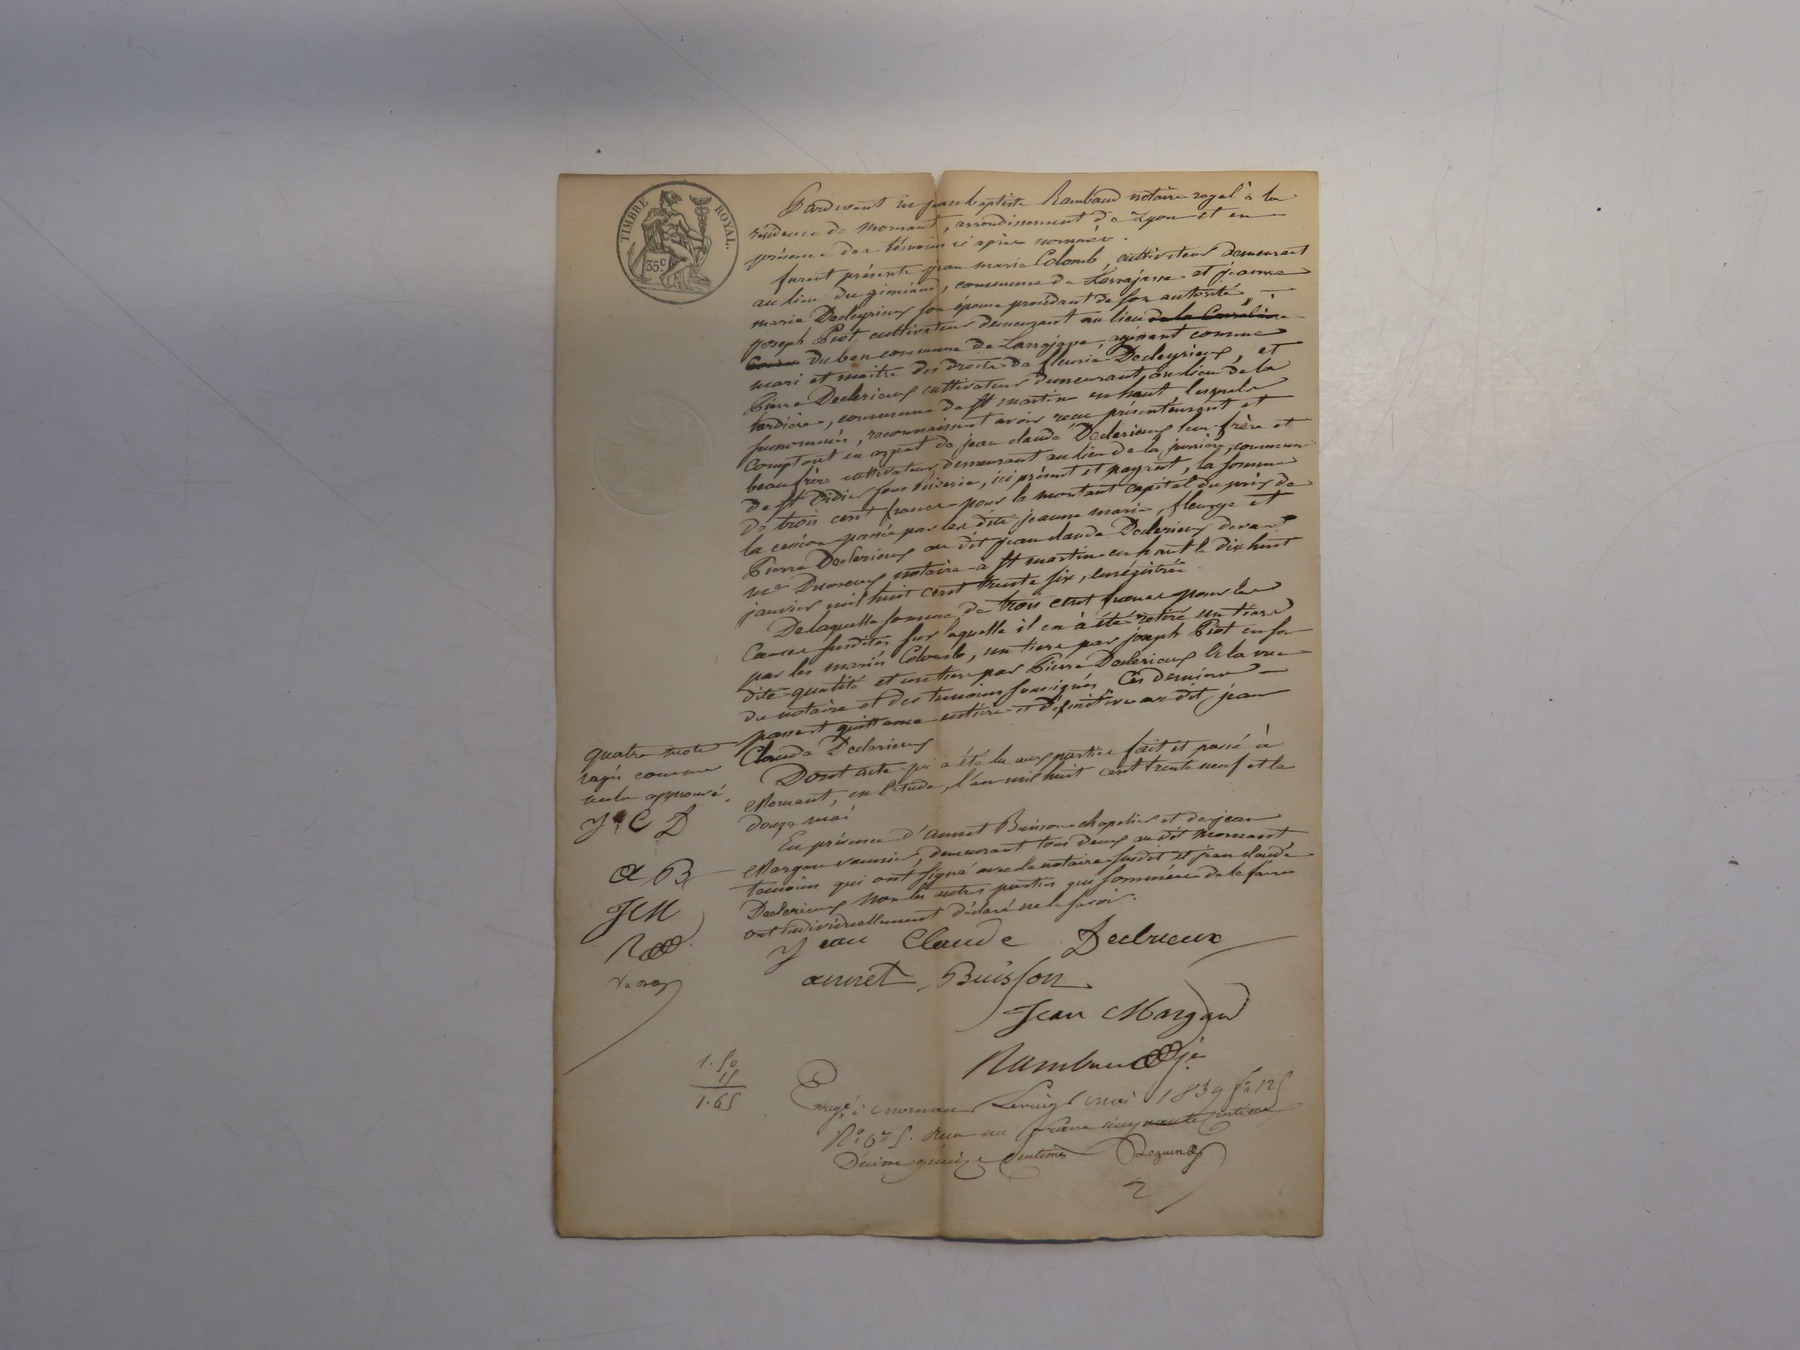 TIMBRE ROYAL.
35 c.
Pardevant me jean baptiste Rambaud notaire royal à la
résidence de Mornant, arrondissement de Lyon et en
présence des témoins ci après nommés.
furent présents jean marie Colomb, cultivateur demeurant
au lieu du gimiand, commune de Larrajasse et jeanne
marie Decleyrieux son épouse procédant de son autorité
joseph Piot cultivateur demeurant au lieu de la
du ban commune de Larrajasse, agissant comme
mari et maitre des droits de fleurie Decleyrieux, et
Pierre Declerieux cultivateur demeurant, au lieu de la
tardière, commune de St martin en haut lesquels
susnommés, reconnaissent avoir reçu présentement et
comptant en argent de jean claude Declerieux leur frère et
beau frère cultivateur demeurant au lieu de la commune
De St Didier sous riverie, ici présent et payant, la somme
de trois cent francs pour le montant capital du prix de
la cession passée par les dits jeanne marie, fleurye et
Pierre Declerieux au dit jean claude Declerieux devant
me notaire à St martin en haut le dix huit
janvier mil huit cent trente six, enrégistrée
De laquelle somme de trois cent francs pour les
causes susdites sur laquelle il en à été retiré un tiers
par les mariés Colomb, un tiers par joseph Piot en sa
dite qualité et un tiers par Pierre Declerieux à la vue
du notaire et des temoins soussignés Ces derniers
passent quittance entière et définitive au dit jean
Claude Declerieux
Dont acte qui a été lu aux parties fait et passé à
Mornant, en l'étude, l'an mil huit cent trente neuf et le
douze mai
En présence d'annet Buisson chapelier et de jean
Margan vannier, demeurant tous deux au dit Mornant
temoins qui ont signé avec le notaire susdit et jean claude
Declerieux non les autres parties qui sommées de le faire
ont individuellement déclaré ne le savoir.
quatre mots
rayés comme
nuls approuvé.
J C D
a B
J M
R
Jean Claude Declrieux
annet Buisson
Jean Margand
Rambaud
1.50
15
1.65
Enregé à Mornant le vingt mai 1839 fo 125
No 6 reçu un franc cinquante centimes
Décime quinze Centimes